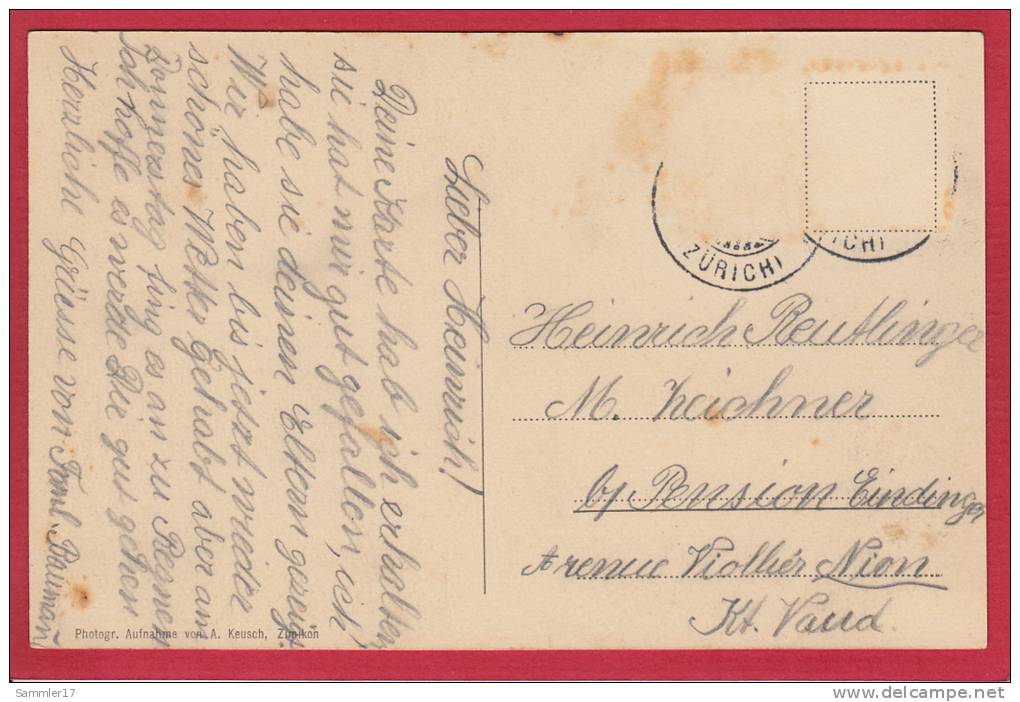 Lieber Heinrich!
Deine Karte hab ich erhalten,
sie hat mir gut gefallen, ich
habe sie deinen Eltern gezeigt.
Wir haben bis jetzt wieder
schönes Wetter Gehabt aber am
Donnestag fing es an zu Regnen
Ich hoffe es werde Dir gut gehen
Herzliche Grüsse von Faml. Bauman
Photogr. Aufnahme von A. Keusch, Zumikon
ZÜRICH 1
ICH 1
Heinrich Reutlinger
M. Zeichner
Pension
Avenue Viollier Nion
Kt. Vaud.
Sammler17
http://www.delcampe.net